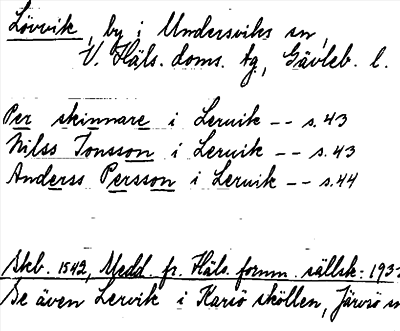 Lövvik, by i Undersviks sn,
V. Häls. doms. tg, Gävleb. l.
Per skinnare i Lervik -- s. 43
Nilss Jonsson i Lervik -- s. 43
Anderss Persson i Lervik -- s. 44
Skb. 1542, Medd. fr. Häls. fornm. sällsk: 193
Se även Lervik i Karsö sköllen, Järvsö